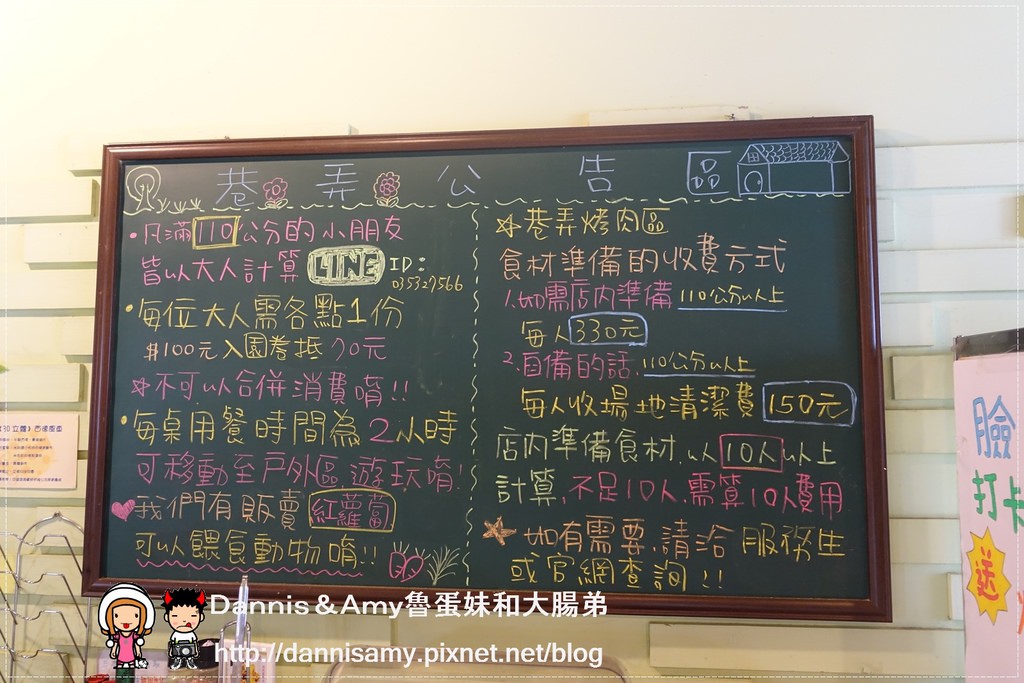 巷弄公告區
•凡滿110公分的小朋友
皆以大人計算 LINE ID:
035327566
•每位大人需各點1份
$100元入園券抵70元
☆不可以合併消費唷!!
•每桌用餐時間為2小時
可移動至戶外區遊玩唷!
♥我們有販賣紅蘿蔔
可以餵食動物唷!!
☆巷弄烤肉區
食材準備的收費方式
1.如需店內準備110公分以上
每人330元
2.自備的話,110公分以上
每人收場地清潔費150元
店內準備食材,以10人以上
計算,不足10人,需算10人費用
☆如有需要,請洽服務生
或官網查詢!!
臉
打卡
送
Dannis&Amy魯蛋妹和大腸弟
http://dannisamy.pixnet.net/blog